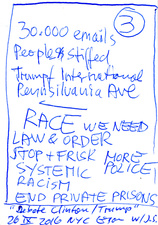 3
30.000 emails
People $ stiffed
Trump International
Pennsilvania Ave
RACE WE NEED
LAW & ORDER
STOP + FRISK MORE
SYSTEMIC POLICE!
RACISM
END PRIVATE PRISONS
"Debate Clinton/Trump"
26 IX 2016 NYC